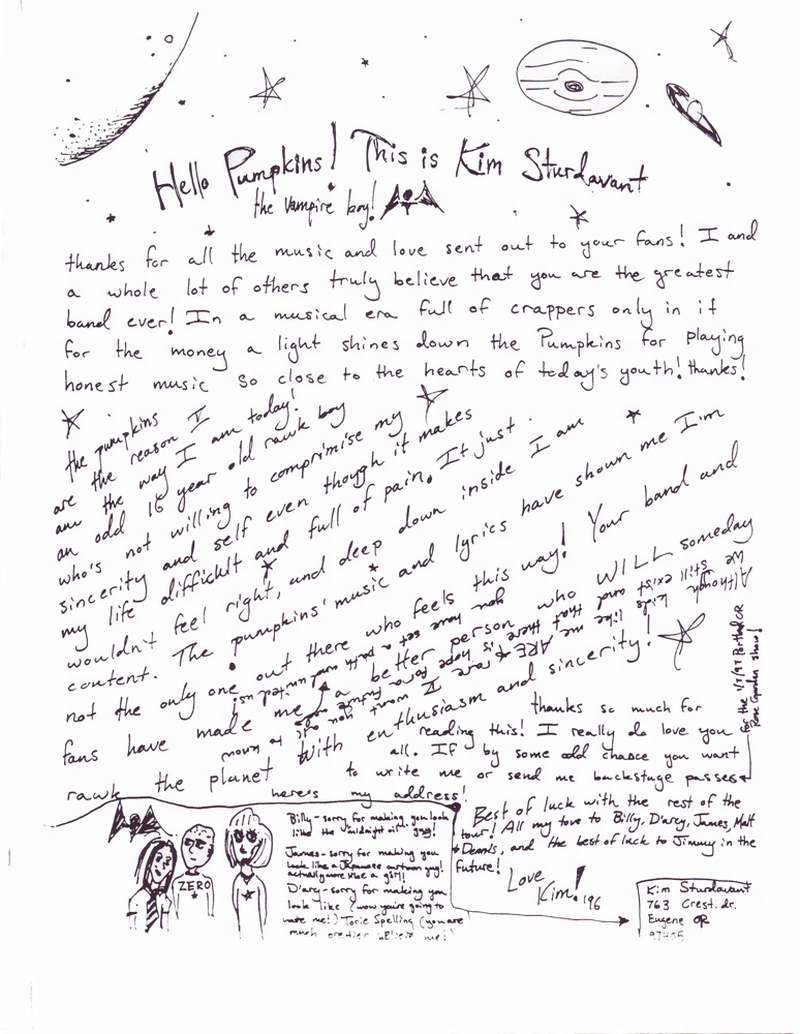 Hello Pumpkins! This is Kim Sturdavant
the Vampire boy!
thanks for all the music and love sent out to your fans! I and
a whole lot of others truly believe that you are the greatest
band ever! In a musical era full of crappers only in it
for the money a light shines down the Pumpkins for playing
honest music so close to the hearts of today's youth! thanks!
the pumpkins
are the reason I
am the way I am today!
an odd 16 year old rawk boy
who's not willing to comprimise my
sincerity and self even though it makes
my life difficult and full of pain. It just
wouldn't feel right, and deep down inside I am
content. The pumpkins' music and lyrics have shown me I'm
not the only one out there who feels this way! Your band and
fans have made me a better person who WILL someday
rawk the planet with enthusiasm and sincerity!
Although kids like me ARE rare I want you all to know
we still exist and that there is hope for a future
you have set a path and
thanks so much for
reading this! I really do love you
all. If by some odd chance you want
to write me or send me backstage passes
here's my address!
for the 1/7/97 Portland OR
Rose Garden show!
Billy - sorry for making you look
like the midnight oil guy!
James - sorry for making you
look like a Japanese cartoon guy!
actually more like a girl!
D'arcy - sorry for making you
look like (wow you're going to
hate me!) Torie Spelling (you are
much prettier believe me!)
ZERO
Best of luck with the rest of the
tour! All my love to Billy, D'arcy, James, Matt
+ Dennis, and the best of luck to Jimmy in the
future!
Love
Kim! '96
Kim Sturdavant
763 Crest. dr.
Eugene OR
97405